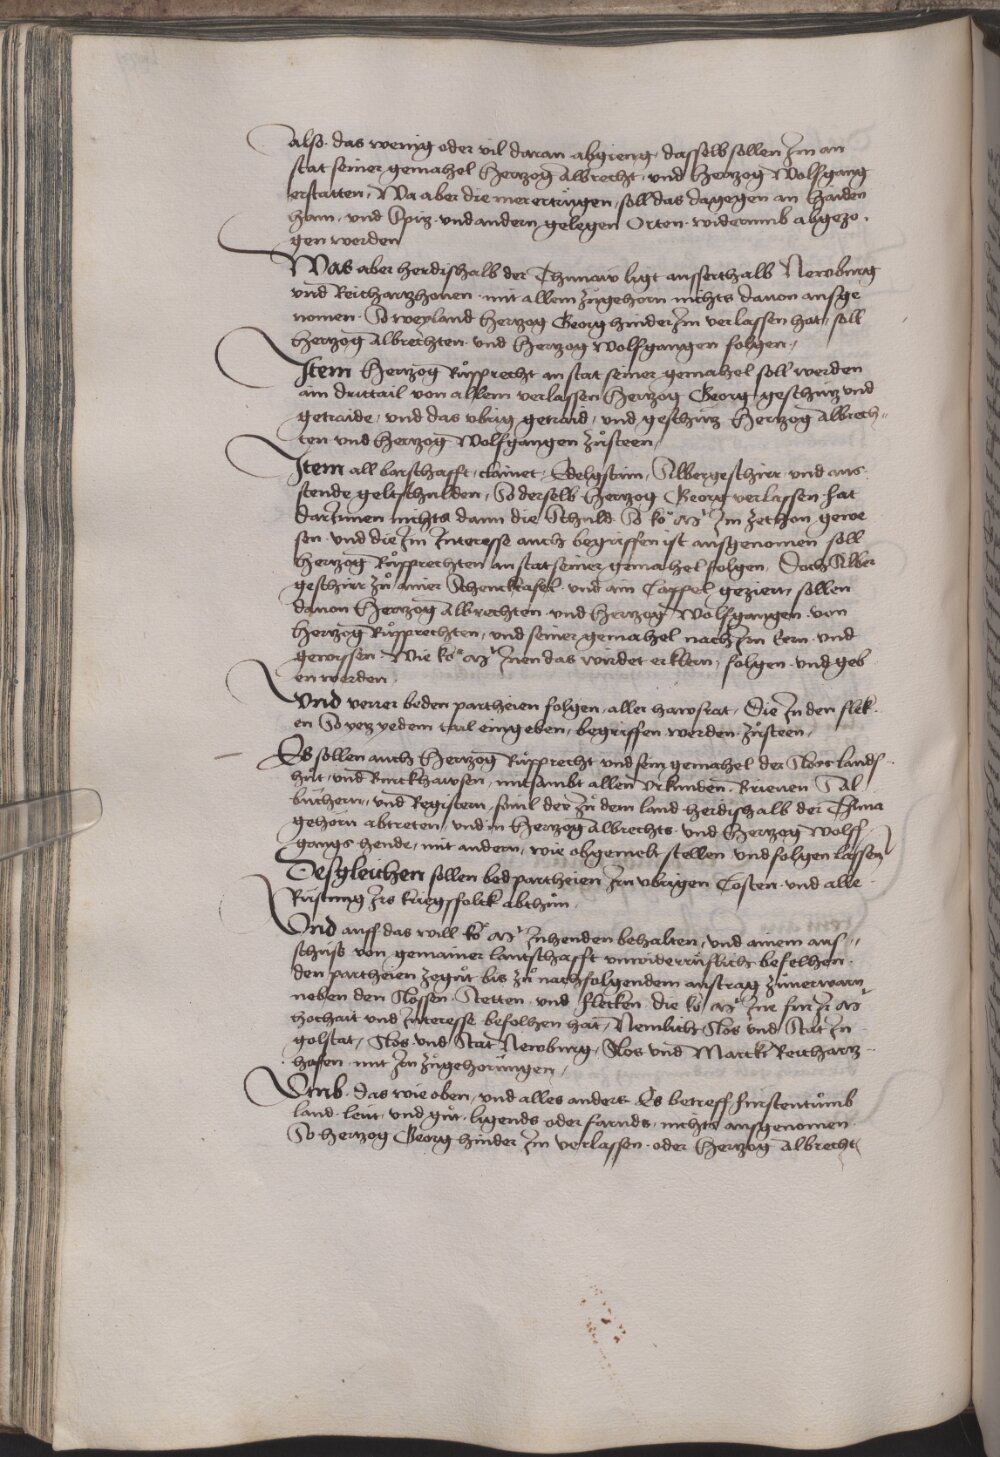 Also. das wenig oder vil daran abgieng, dasselb sollen Im an
stat seiner gemahel Hertzog Albrecht, und Hertzog Wolfgang
erstatten, Wa aber die mer ertrügen, soll das dagegen an Haiden
Haim, und Spitz. und andern gelegen Orten. widerumb abgezo,
gen werden
Was aber herdishalb der Thunaw ligt ausserthalb Newburg
und Reichartzhouen. mit allem zugehorn nichts dauon ausge
nomen. So weyland Hertzog Georg hinder Im verlassen hat, soll
Hertzog Albrechten. und Hertzog Wolfgangen folgen,
Item Hertzog Růpprecht an stat seiner gemahel soll werden
ain drittail von allem verlassen Hertzog Georg, geschutz und
getraide, und das ubrig getraid, und geschutz Hertzog Albrech,,
ten und Hertzog Wolfgangen zůsteen,
Item all barschafft, clainet, Edelgstain, Silbergeschirr und aus
stende geltschulden, So derselb Hertzog Georg verlassen hat
darInnen nichts dann die Schuld So ko Mt Im zethon gewe
sen. und die Im Interesse auch begriffen ist ausgenomen soll
Hertzog Růpprechten an stat seiner gemahel folgen, Doch Silber
geschirr zů ainer Schencktafel und ain Cappel geziern sollen
dauon Hertzog Albrechten und Hertzog Wolfgangen. von
Hertzog Růpprechten, und seiner gemahel nach Irn Eern. und
gewissen. Wie ko Mt Inen das wirdet erklern, folgen und geb
en werden.
Und verrer beden partheien folgen, aller hawsrat, Die In den flek
en So yetz yedem tail eingeben, begriffen werden. zůsteen,
Es sollen auch Hertzog Růpprecht und sein gemahel der Slos lands
hůt, und Burckhawsen, mitsambt allen Urkunden. Brieuen Sal
büchern, und Registern, souil der zů dem land herdishalb der Thuna
gehorn abtreten, und in Hertzog Albrechts. und Hertzog Wolff
gangs hende, mit andern, wie obgemelt stellen und folgen lassen
Desgleichen sollen bed partheien Irn ubrigen Costen. und alle
Rüstung Irs kriegsfolck abthun.
Und auff das will ko Mt Inhenden behalten, und ainem aus,,
schuss von gemainer lantschafft unwiderrüflich befelhen.
den partheien zegůt bis zů nachfolgendem austrag zůuerwarn
neben den Slossen Stetten. und flecken die ko Mt Im fur Ir Mt
hochait und Interesse befolhen hat, Nemlich Slos und Stat In
golstat, Slos und Stat Newburg, Slos und Marckt Reichartz
hofen. mit Irn zůgehorungen,
Umb. das wie oben, und alles anders. Es betreff fürstentůmb
land. leut, und gůt. ligends oder farnds, nichts ausgenomen.
So Hertzog Georg hinder Im verlassen. oder Hertzog Albrecht